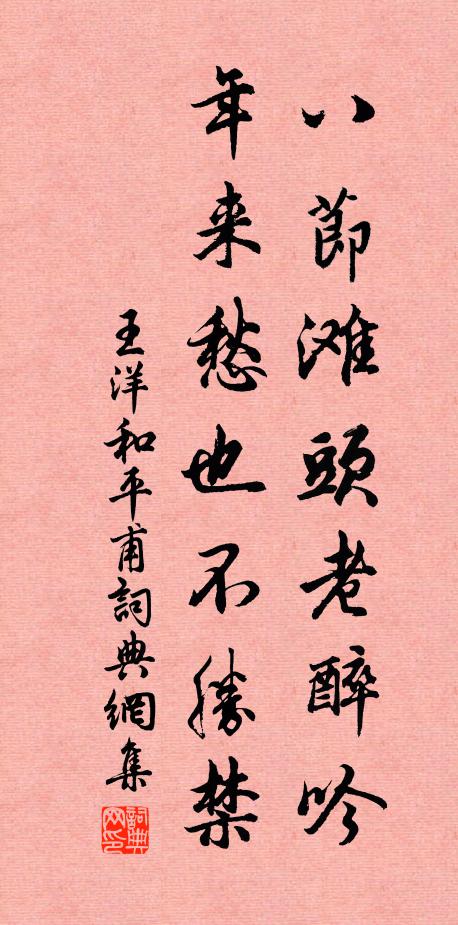 八節滩頭老醉吟
年来愁也不勝禁
王洋和平甫詞典網集
詞典网印